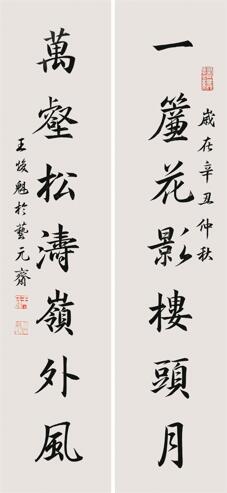 一簾花影樓頭月
歲在辛丑仲秋
萬壑松濤嶺外風
王俊魁於藝元齋